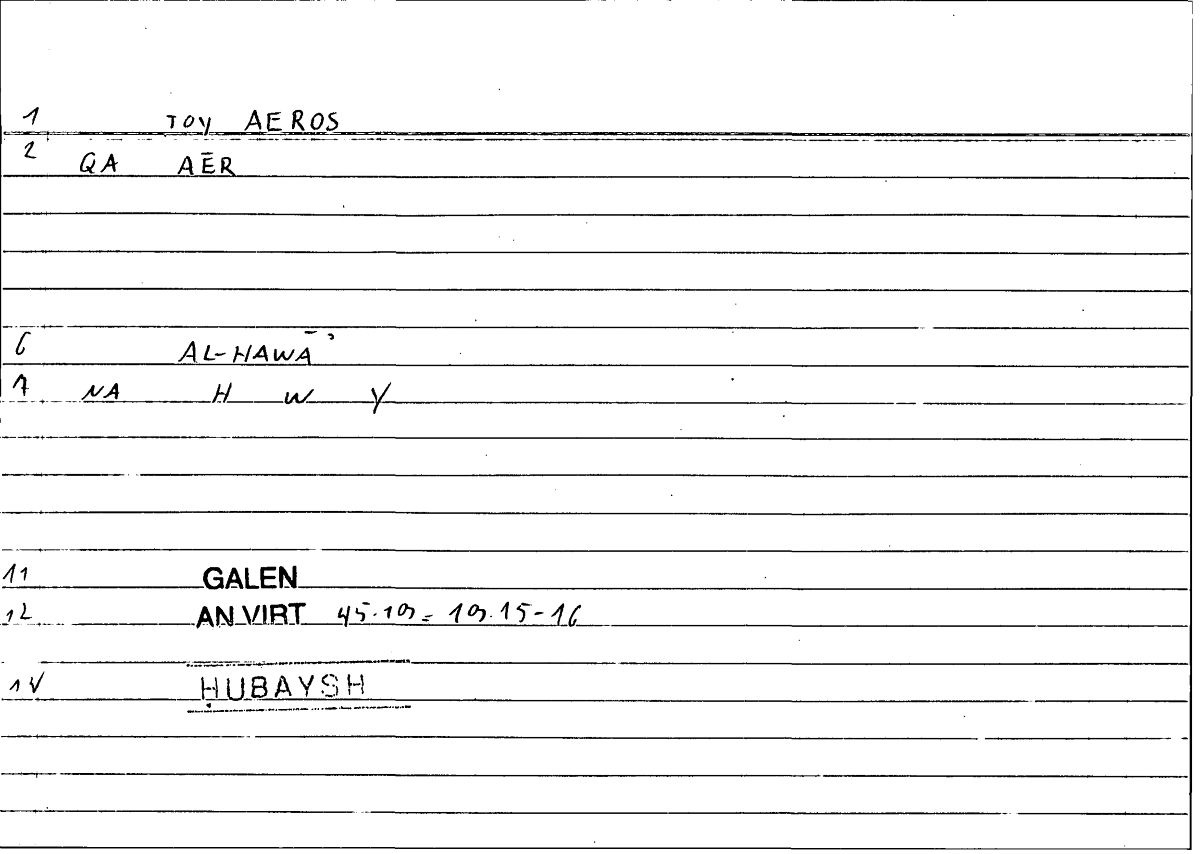 1 TOY AEROS
2 QA AĒR
6 AL-HAWĀʾ
7 NA H W Y
11 GALEN
12 AN VIRT 45.19 = 19.15-16
14 ḤUBAYSH